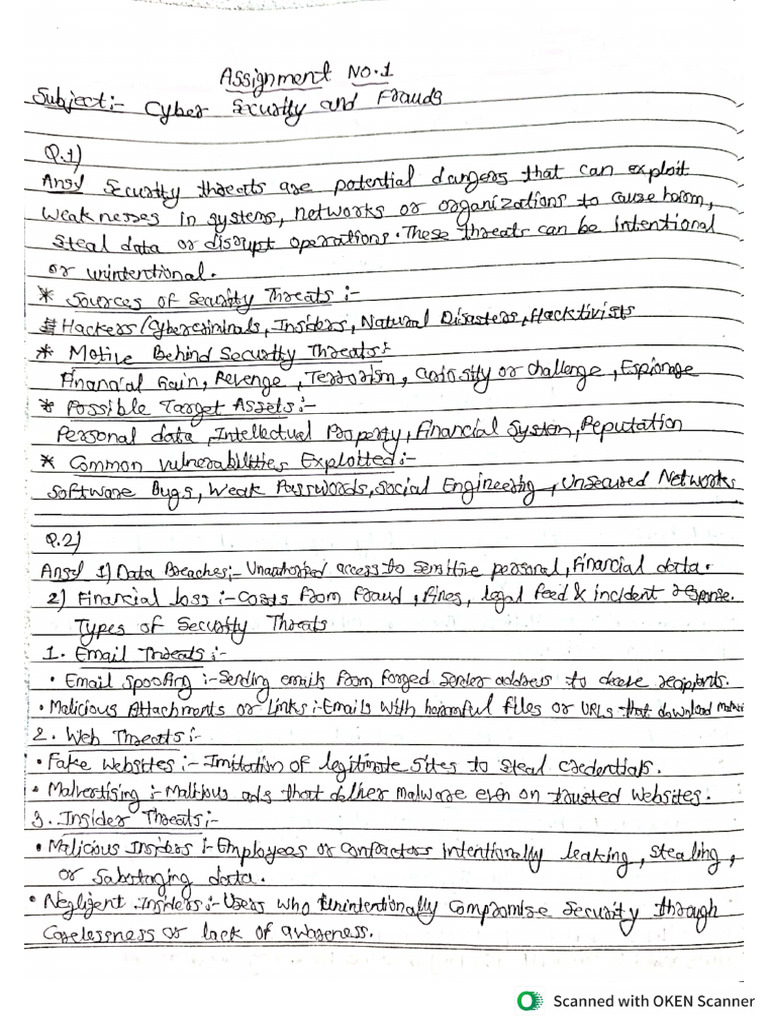 Assignment No.1
Subject:- Cyber Security and Frauds
Q.1)
Ans) Security threats are potential dangers that can exploit
weaknesses in systems, networks or organizations to cause harm,
steal data or disrupt operations. These threats can be intentional
or unintentional.
* Sources of Security Threats:-
Hackers/Cybercriminals, Insiders, Natural Disasters, Hacktivists
* Motive Behind Security Threats:-
Financial Gain, Revenge, Terrorism, Curiosity or challenge, Espionage
* Possible Target Assets:-
Personal data, Intellectual Property, Financial System, Reputation
* Common vulnerabilities Exploited:-
Software Bugs, Weak Passwords, Social Engineering, Unsecured Networks
Q.2)
Ans) 1) Data Breaches:- Unauthorized access to sensitive personal, Financial data.
2) Financial loss:- Costs from Fraud, fines, legal feed & incident response.
Types of Security Threats
1. Email Threats:-
• Email spoofing:- Sending emails from forged sender address to deceive recipients.
• Malicious Attachments or Links:- Emails with harmful files or URLs that download
2. Web Threats:-
• Fake websites:- Imitation of legitimate sites to steal credentials.
• Malvertising:- Malicious ads that deliver malware even on trusted websites.
3. Insider Threats:-
• Malicious Insiders:- Employees or contractors intentionally leaking, stealing,
or sabotaging data.
• Negligent Insiders:- Users who unintentionally compromise security through
carelessness or lack of awareness.
Scanned with OKEN Scanner